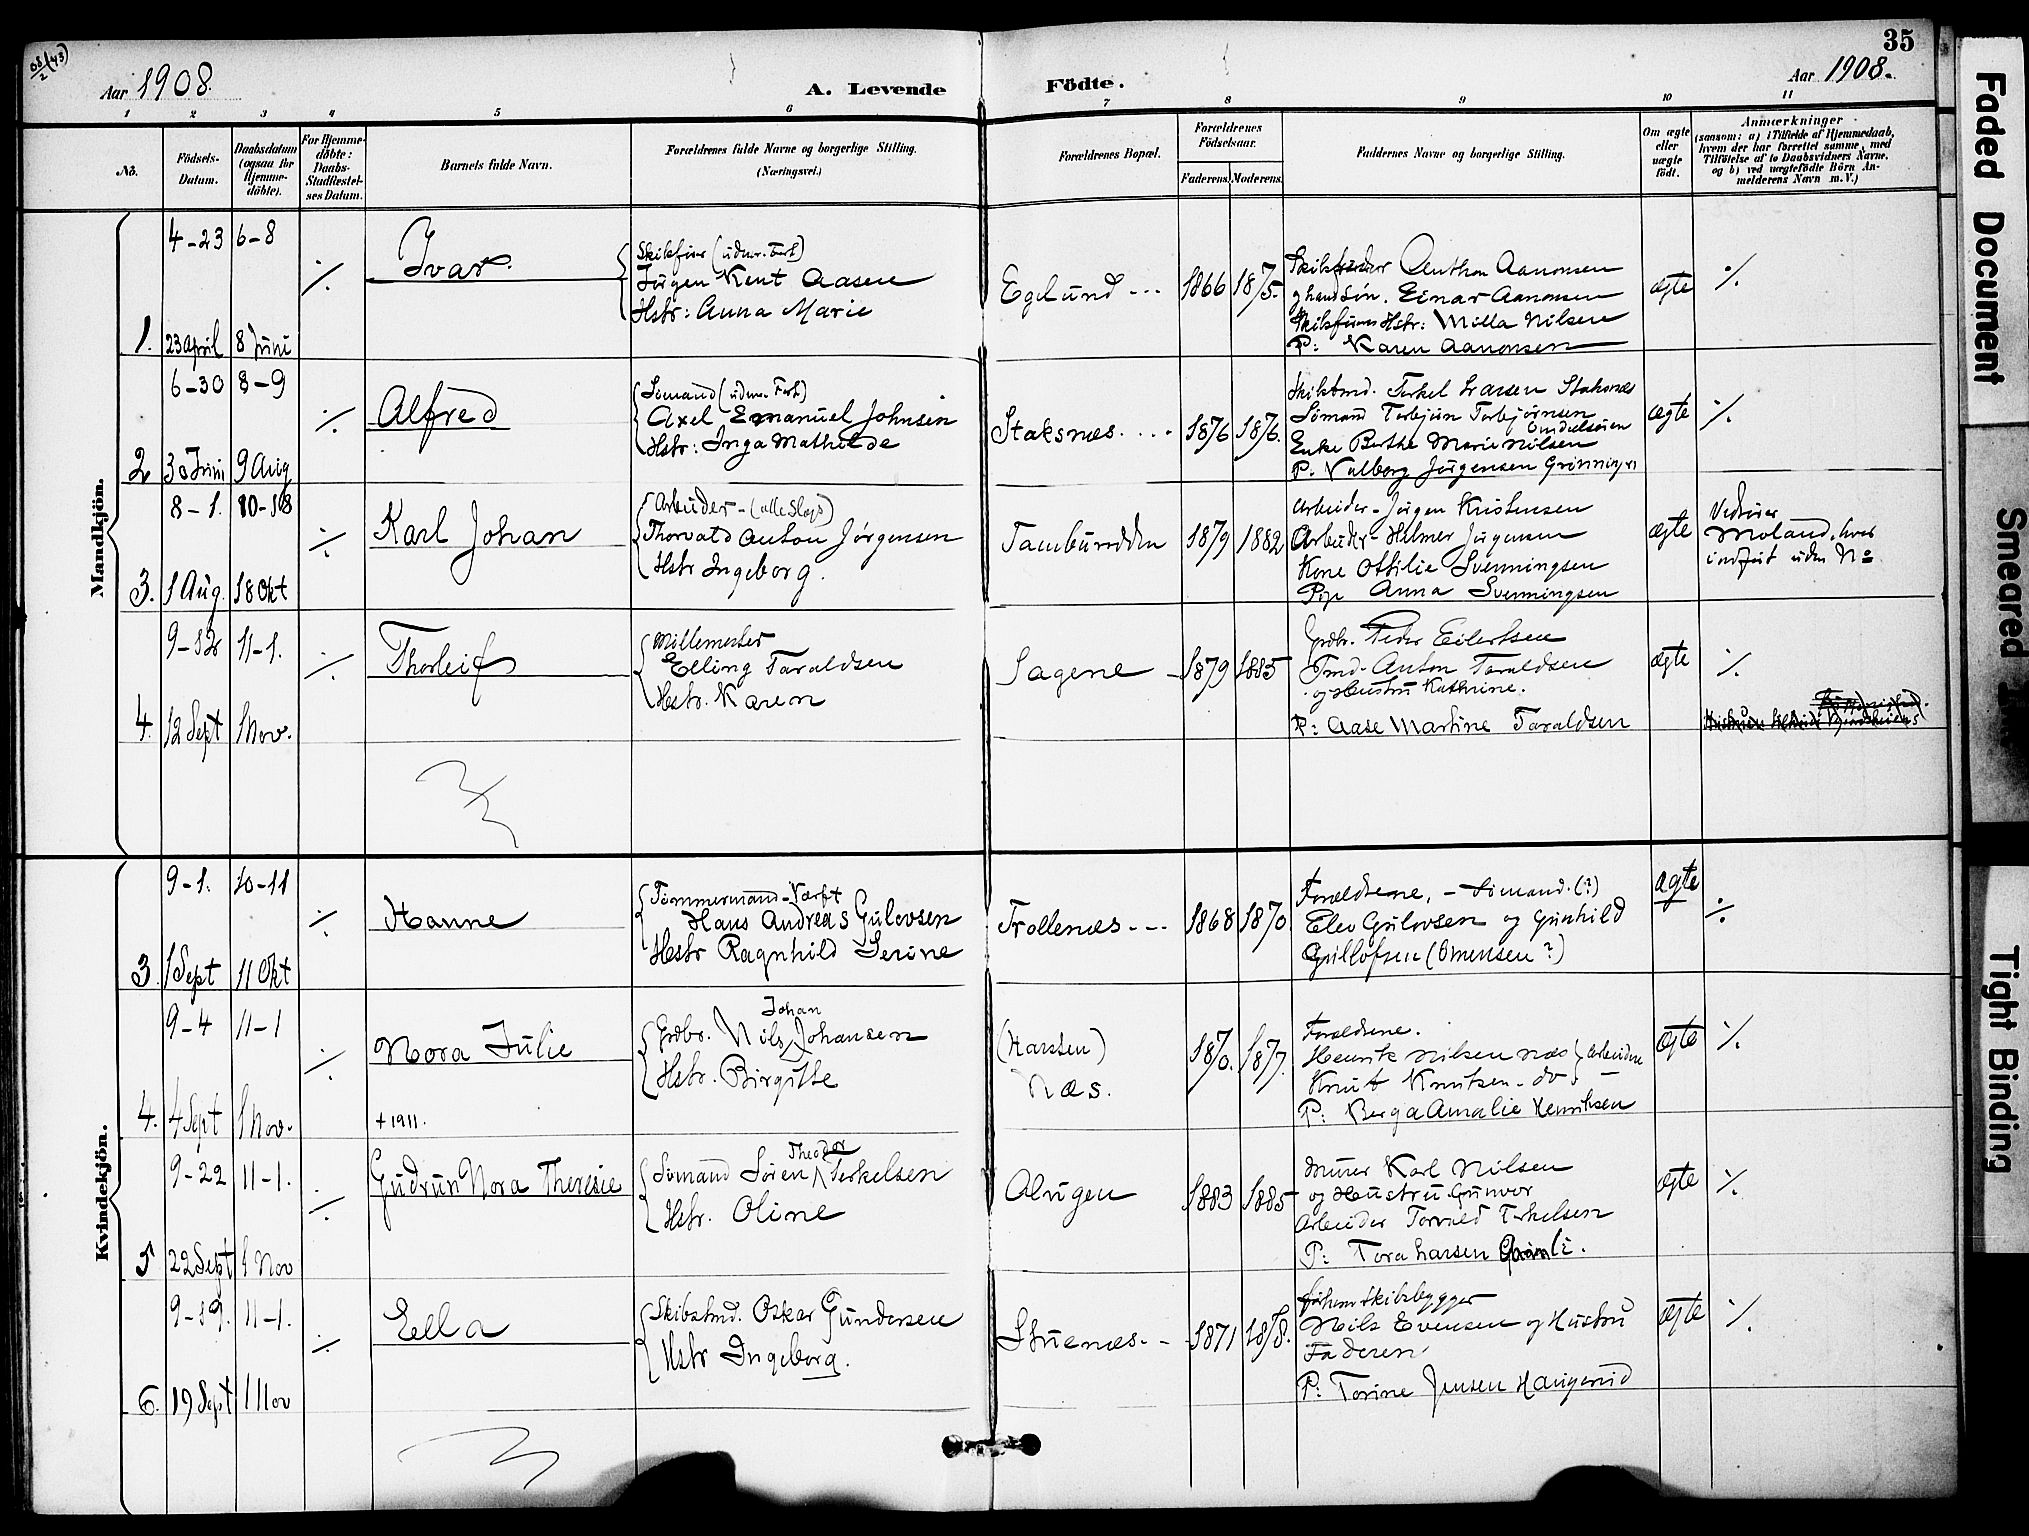 08/2 (43)
35
Aar 1908.
A. Levende Födte.
Aar 1908.
1 2 3 4 5 6 7 8 9 10 11
No.
Födsels-Datum.
Daabsdatum (ogsaa for Hjemme-döbte).
For Hjemme-döbte: Daabs-Stadfæstel-ses Datum.
Barnets fulde Navn.
Forældrenes fulde Navne og borgerlige Stilling.
(Næringsvei.)
Forældrenes Bopæl.
Forældrenes Födselsaar.
Faderens. Moderens.
Faddernes Navne og borgerlige Stilling.
Om ægte eller uægte födt.
Anmærkninger
(saasom: a) i Tilfælde af Hjemmedaab, hvem der har forrettet samme, med Tilföielse af to Daabsvidners Navne, og b) ved uægtefödte Börn An-melderens Navn m. V.)
Mandkjön.
4-23 6-8
1. 23 april 8 Juni
Ivar.
Skibsfører (udenr. Fart)
Jørgen Kent Aasen
Hstr: Anna Marie
Egelund
1866 1875.
Skibsfører Anthon Aanonsen
og hans Søn. Einar Aanonsen
Skibsførers Hstr: Milla Nilsen
P: Karen Aanonsen
ægte
6-30 8-9
2 30 Juni 9 Aug
Alfred
Sømand (udenr. Fart)
Axel Emanuel Johnsen
Hstr: Inga Mathilde
Staksnæs.
1876 1876.
Skibstmd. Terkel Larsen Staksnæs
Sømand Torbjørn Torbjørnsen
Enke Berthe Marie Nilsen
P. Valborg Jørgensen
ægte
8-1. 10-18
3. 1 Aug. 18 Okt
Karl Johan
Arbeider - (alle Slags)
Thorvald Anton Jørgensen
Hstr Ingeborg.
1879 1882
Arbeider - Jørgen Kristensen
Arbeider - Helmer Jørgensen
Kone Othilie Svenningsen
Pige Anna Svenningsen
ægte
Vedrører
Moland, hvor
indført under No
9-12 11-1.
4. 12 Sept 1 Nov.
Thorleif
Møllemester
Elling Taraldsen
Hstr. Karen
Sagene
1879 1885
Grdbr. Peder Eilertsen
Tmd. Anton Taraldsen
og Hustru Kathrine.
P: Aase Martine Taraldsen
ægte
Kvindekjön.
9-1. 10-11
3. 1 Sept 11 Okt
Hanne
Tømmermand - Værft
Hans Andreas Gulovsen
Hstr Ragnhild Serine
Trollenæs
1868 1870
Forældrene, - Sømand. (?)
Elev Gulovsen og Gunhild
Gullofsen (Omensen?)
ægte
9-4 11-1
4. 4 Sept 1 Nov.
Nora Julie
+ 1911.
Johan
Grdbr. Nils Johansen
Hstr. Birgitte
(Harsten)
Næs.
1870. 1877.
Forældrene.
Henrik Nilsen Næs } Arbeidere
Knut Knutsen - do
P: Berga Amalie Henriksen
ægte
9-22 11-1.
5 22 Sept 1 Nov
Gudrun Nora Theresie
Theodor
Sømand Søren Terkelsen
Hstr. Oline
Alnigen
1883 1885
Murer Karl Nilsen
og Hustru Gunvor
Arbeider Torvald Terkelsen
P: Tora Larsen
ægte
9-19. 11-1.
6. 19 Sept 1 Nov
Ella
Skibstmd. Oskar Gundersen
Hstr Ingeborg.
Stuenæs.
1871 1878.
forhenv. Skibsbygger
Nils Evensen og Hustru
Faderen
P: Torine Jensen Haugerud
ægte
Faded Document
Smeared Ink
Tight Binding